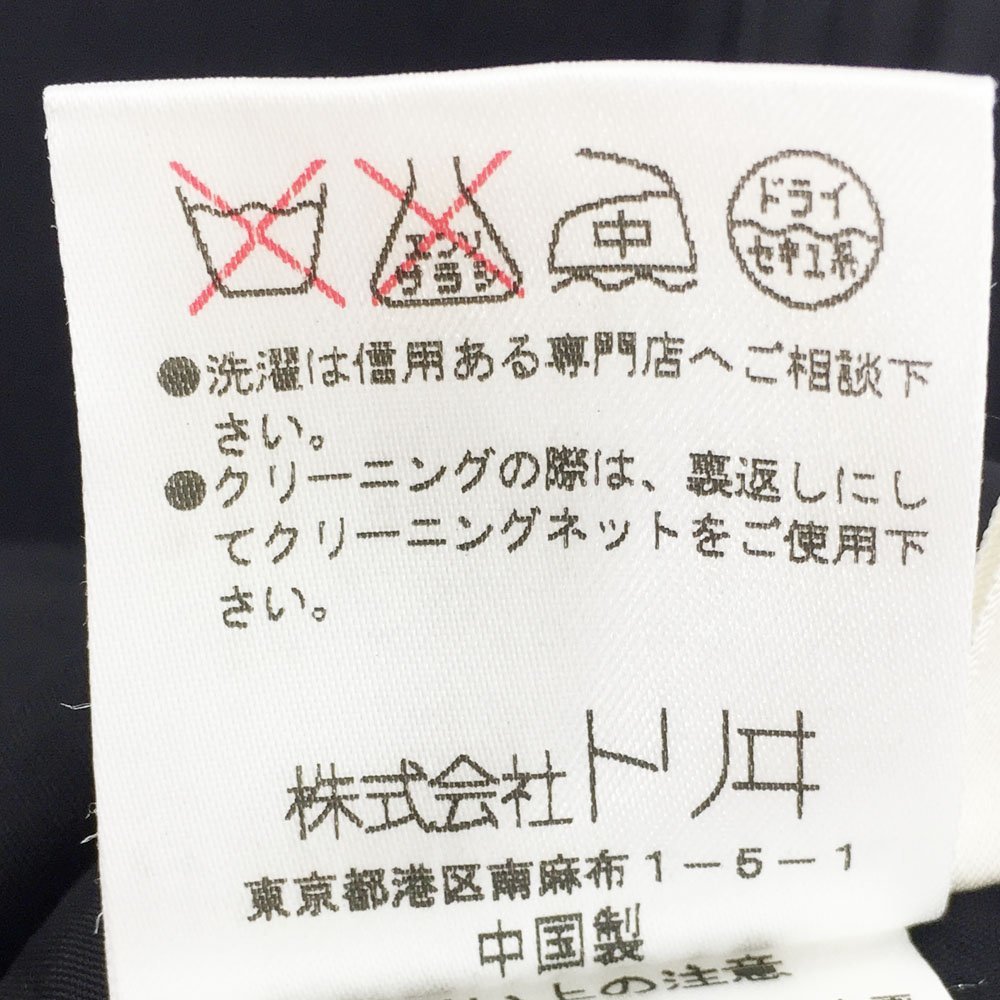 エンソ
サラシ
中
ドライ
セキユ系
●洗濯は信用ある専門店へご相談下
さい。
●クリーニングの際は、裏返しにし
てクリーニングネットをご使用下
さい。
株式会社トリヰ
東京都港区南麻布1-5-1
中国製
上の注意